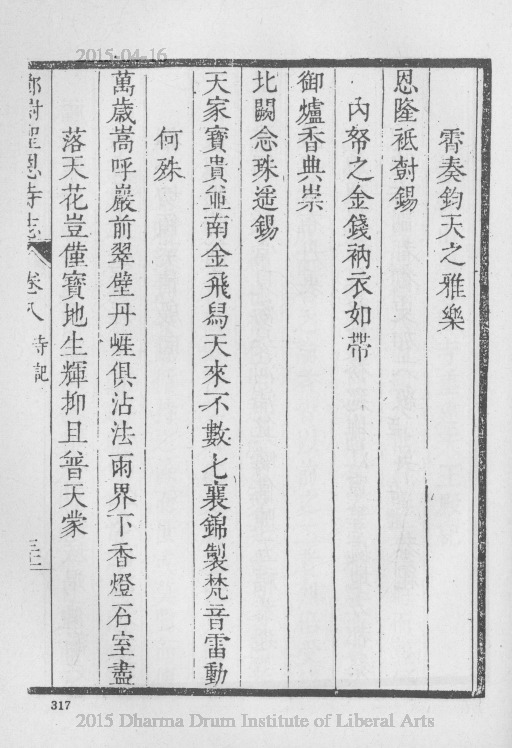 2015-04-16
霄奏鈞天之雅樂
恩隆祗對錫
內帑之金錢衲衣如帶
御爐香典崇
北闕念珠遥錫
天家寶貴並南金飛舄天來不數七襄錦製梵音雷動
何殊
萬歳嵩呼巖前翠壁丹崕俱沾法雨界下香燈石室盡
落天花豈僅寶地生輝抑且普天蒙
鄧尉聖恩寺志 卷八 寺記 三二
317
2015 Dharma Drum Institute of Liberal Arts